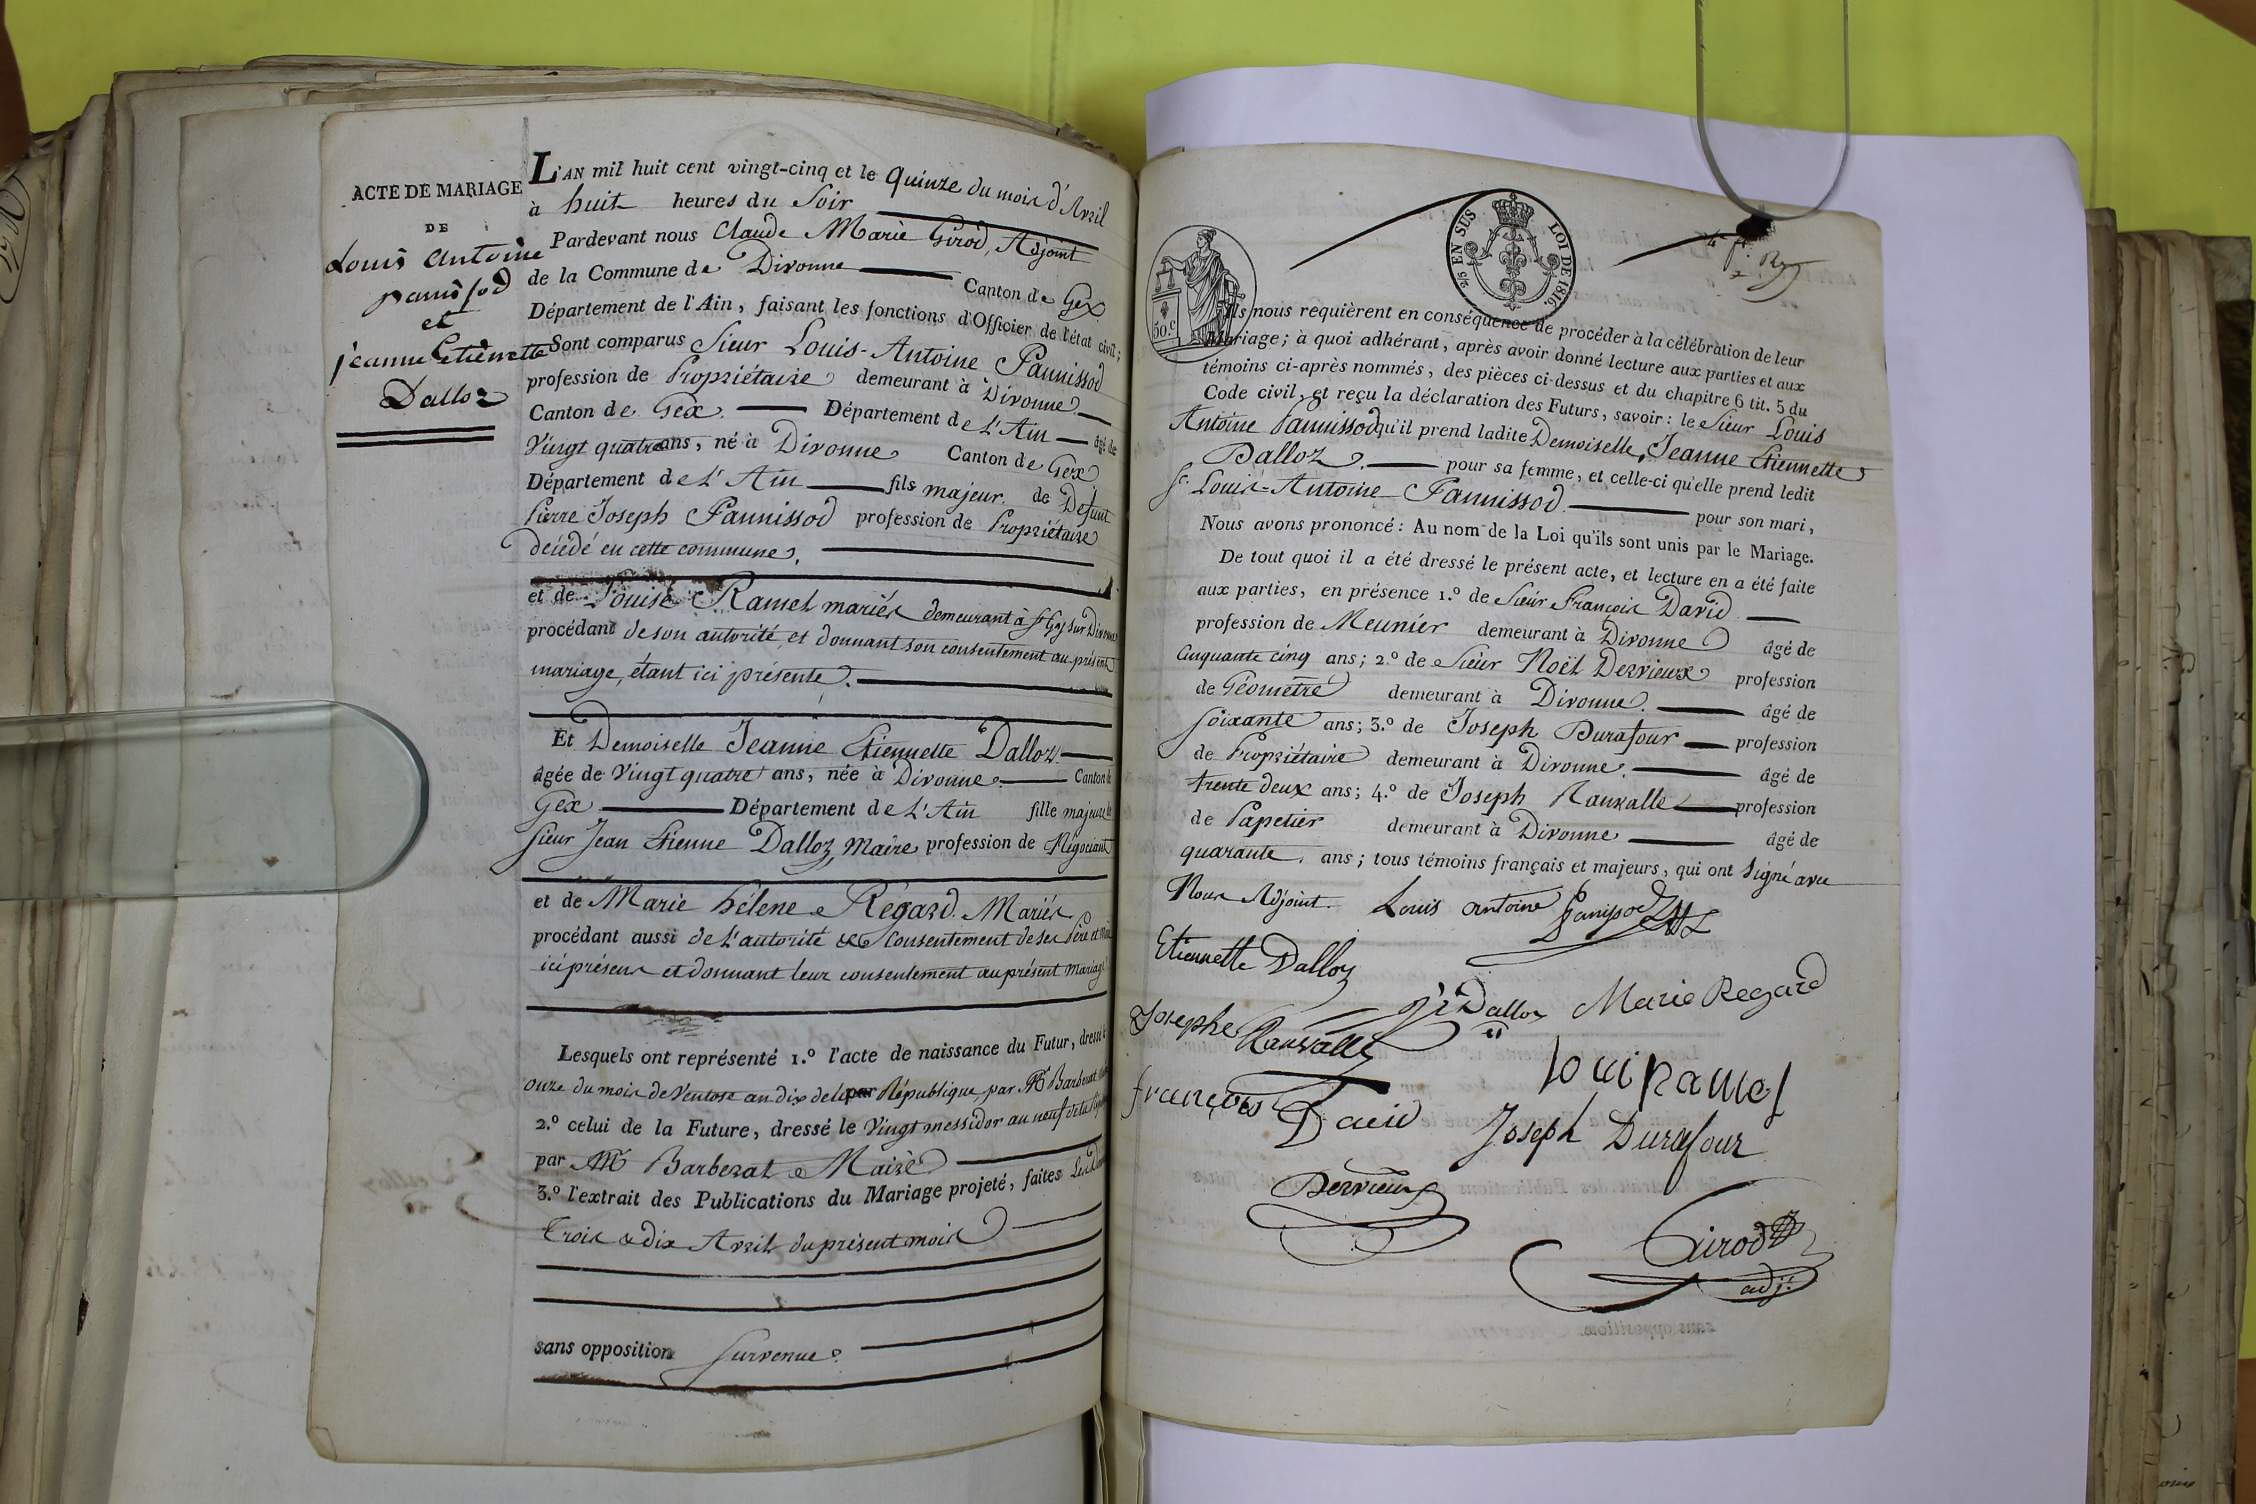 ACTE DE MARIAGE
DE
Louis Antoine
panisod
et
jeanne Etiennette
Dalloz
L'AN mil huit cent vingt-cinq et le Quinze du mois d'Avril
à huit heures du Soir
Pardevant nous Claude Marie Girod, Adjoint
de la Commune de Divonne Canton de Gex
Département de l'Ain, faisant les fonctions d'Officier de l'état civil;
Sont comparus Sieur Louis-Antoine Pannissod
profession de Propriétaire demeurant à Divonne
Canton de Gex Département de L'Ain âgé de
Vingt quatre ans, né à Divonne Canton de Gex
Département de L'Ain fils majeur de Défunt
Pierre Joseph Pannissod profession de Propriétaire
décédé en cette commune,
et de Louise Ramel mariés demeurant à St Gy sur Divonne
procédant de son autorité et donnant son consentement au présent
mariage, étant ici présente.
Et Demoiselle Jeanne Etiennette Dalloz
âgée de Vingt quatre ans, née à Divonne Canton de
Gex Département de L'Ain fille majeure de
Sieur Jean Etienne Dalloz, Maire profession de Négociant
et de Marie hélene Régard Mariés
procédant aussi de L'autorité & Consentement de ses Père et
ici présens et donnant leur consentement au présent mariage
Lesquels ont représenté 1.º l'acte de naissance du Futur, dressé
onze du mois de Ventose an dix de la par République, par Mr Barberat
2.º celui de la Future, dressé le Vingt messidor an neuf de la
par Mr Barberat Maire
3.º l'extrait des Publications du Mariage projeté, faites Les
Trois & dix Avril du présent mois
sans opposition Survenue.
3/5 EN SUS LOI DE 1816.
50.c
Ils nous requièrent en conséquence de procéder à la célébration de leur
Mariage; à quoi adhérant, après avoir donné lecture aux parties et aux
témoins ci-après nommés, des pièces ci-dessus et du chapitre 6 tit. 5 du
Code civil, et reçu la déclaration des Futurs, savoir: le Sieur Louis
Antoine Pannissod qu'il prend ladite Demoiselle, Jeanne Etiennette
Dalloz. pour sa femme, et celle-ci qu'elle prend ledit
Sr. Louis-Antoine Pannissod. pour son mari,
Nous avons prononcé: Au nom de la Loi qu'ils sont unis par le Mariage.
De tout quoi il a été dressé le présent acte, et lecture en a été faite
aux parties, en présence 1.º de Sieur François David
profession de Meunier demeurant à Divonne âgé de
Cinquante cinq ans; 2.º de Sieur Noël Dervieux profession
de Géomètre demeurant à Divonne. âgé de
soixante ans; 3.º de Joseph Durafour profession
de Propriétaire demeurant à Divonne. âgé de
trente deux ans; 4.º de Joseph Ranvalle profession
de Papetier demeurant à Divonne âgé de
quarante. ans; tous témoins français et majeurs, qui ont Signé avec
Nous Adjoint. Louis antoine Panissod
Etiennette Dalloz
Dalloz Marie Regard
Josephe Ranvalle
Loui Ramel
françois David
Joseph Durafour
Dervieux
Girod
adj.